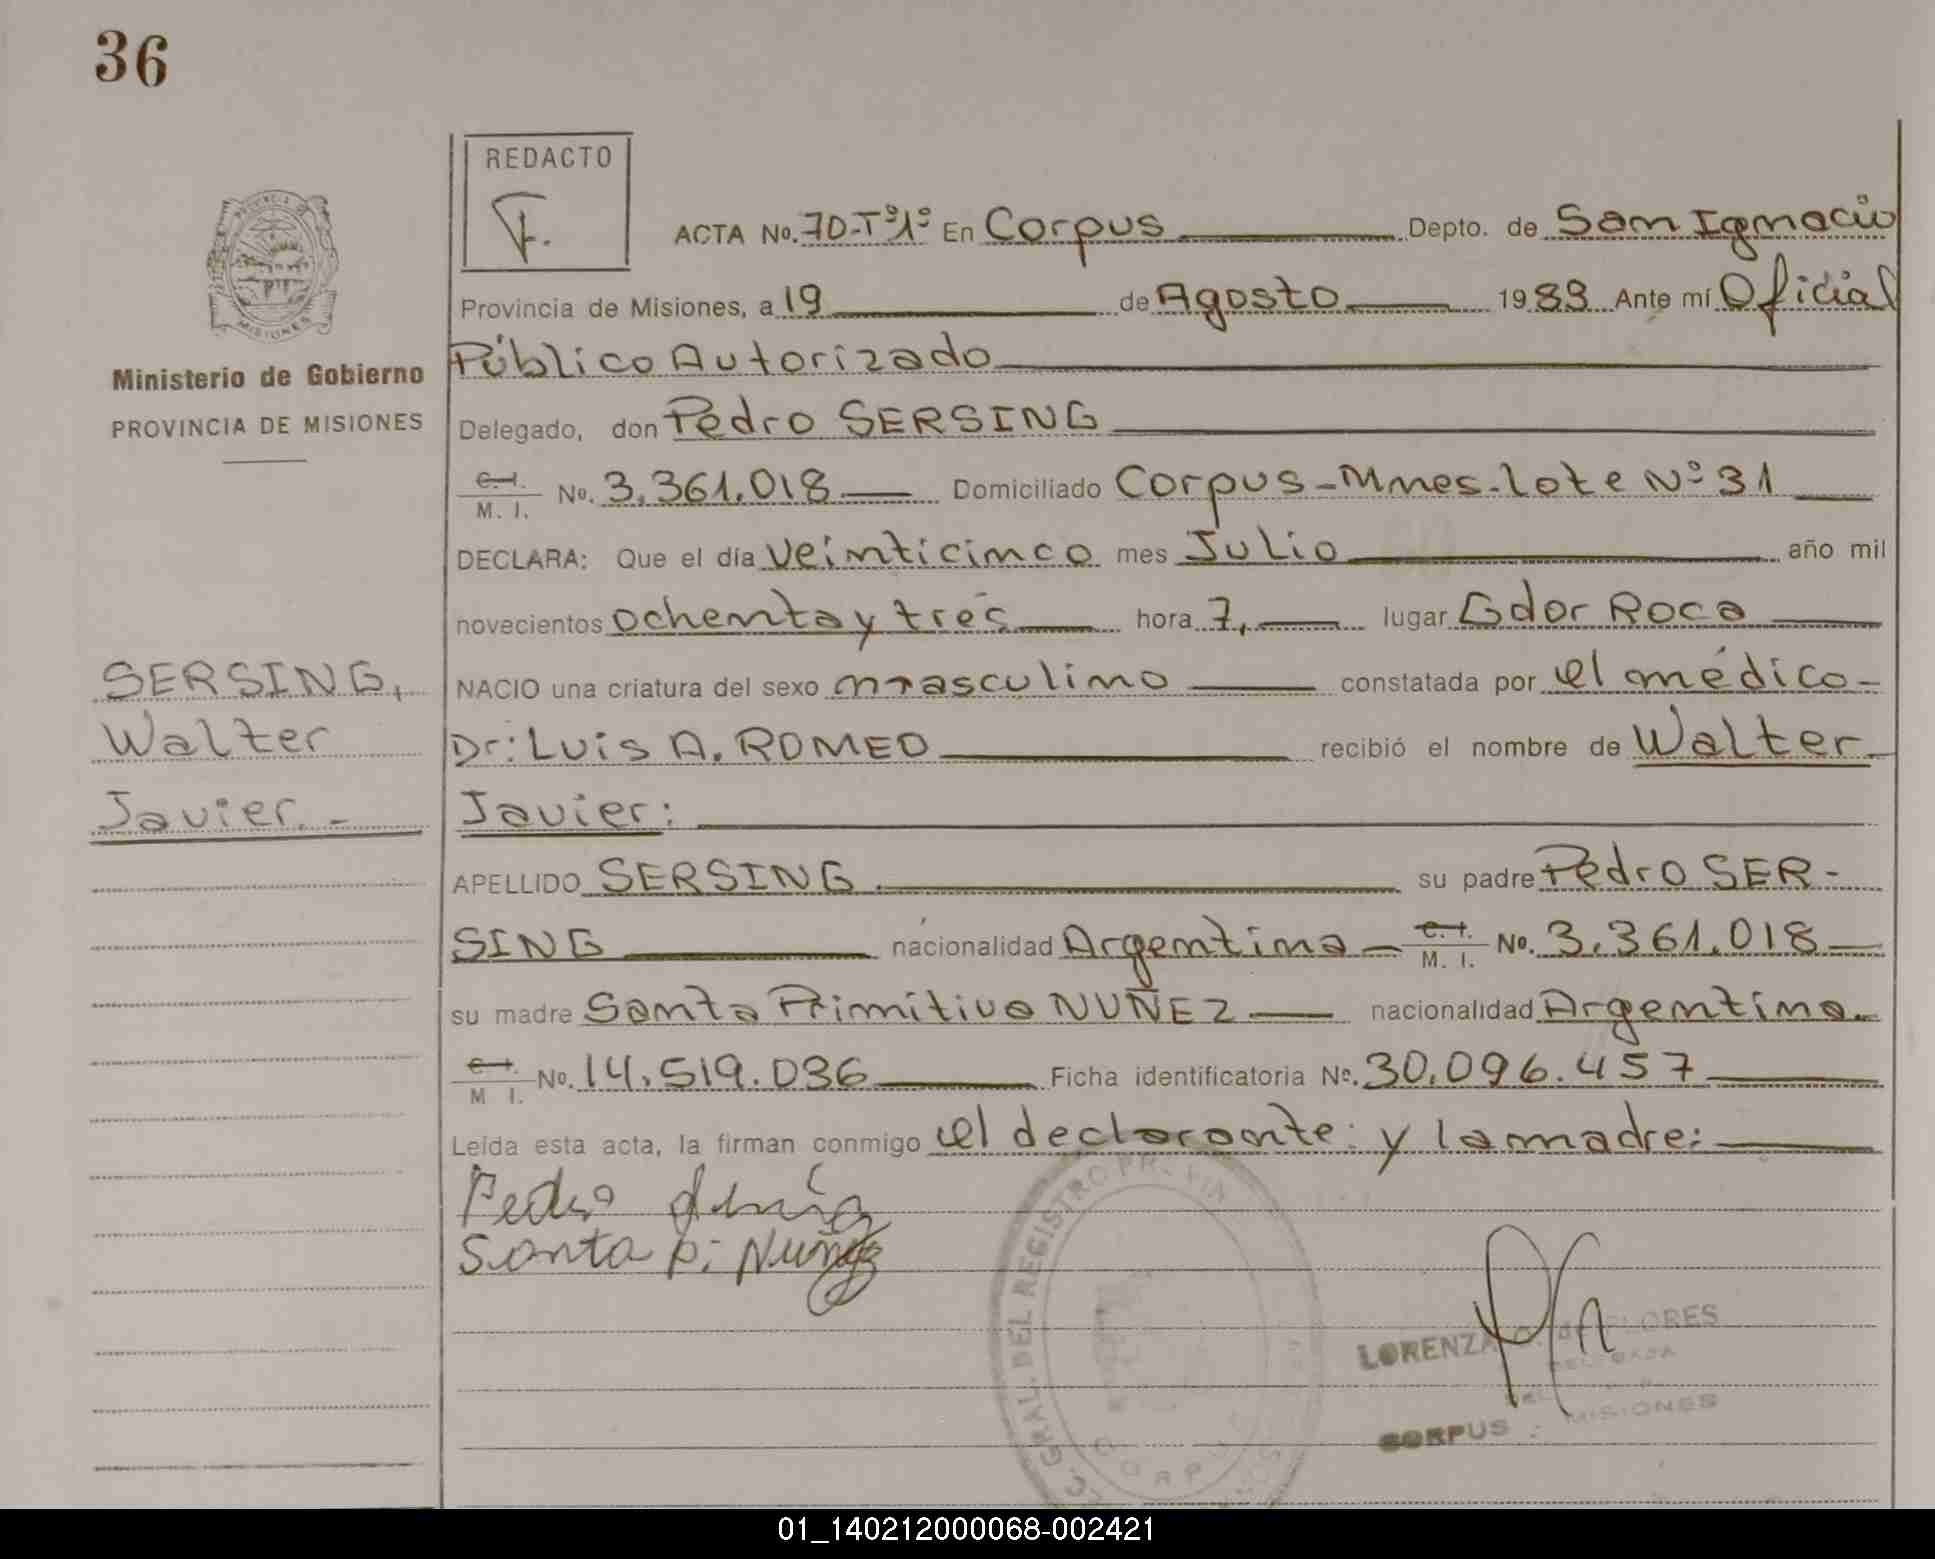 36
REDACTO
F.
PROVINCIA DE
MISIONES
Ministerio de Gobierno
PROVINCIA DE MISIONES
SERSING,
Walter
Javier.-
ACTA No. 70-Tº1º En Corpus Depto. de San Ignacio
Provincia de Misiones, a 19 de Agosto 1983 Ante mí Oficial
Público Autorizado
Delegado, don Pedro SERSING
C.I. M. I. No. 3.361.018 Domiciliado Corpus-Mnes-lote Nº 31
DECLARA: Que el día veinticinco mes Julio año mil
novecientos ochenta y tres hora 7, lugar Gdor Roca
NACIO una criatura del sexo masculino constatada por el médico-
Dr: Luis A. ROMEO recibió el nombre de Walter
Javier:
APELLIDO SERSING su padre Pedro SER-
SING nacionalidad Argentina C.I. M. I. No. 3.361.018
su madre Santa Primitiva NUÑEZ nacionalidad Argentina.
C.I. M I. No. 14.519.036 Ficha identificatoria Nº. 30.096.457
Leída esta acta, la firman conmigo el declarante: y la madre:
Pedro
Santa p. Nuñez
GRAL. DEL REGISTRO
CORPUS
LORENZA de FLORES
DELEGADA
CORPUS - MISIONES
01_140212000068-002421